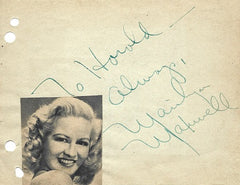 To Harold —
always,
Marilyn
Maxwell